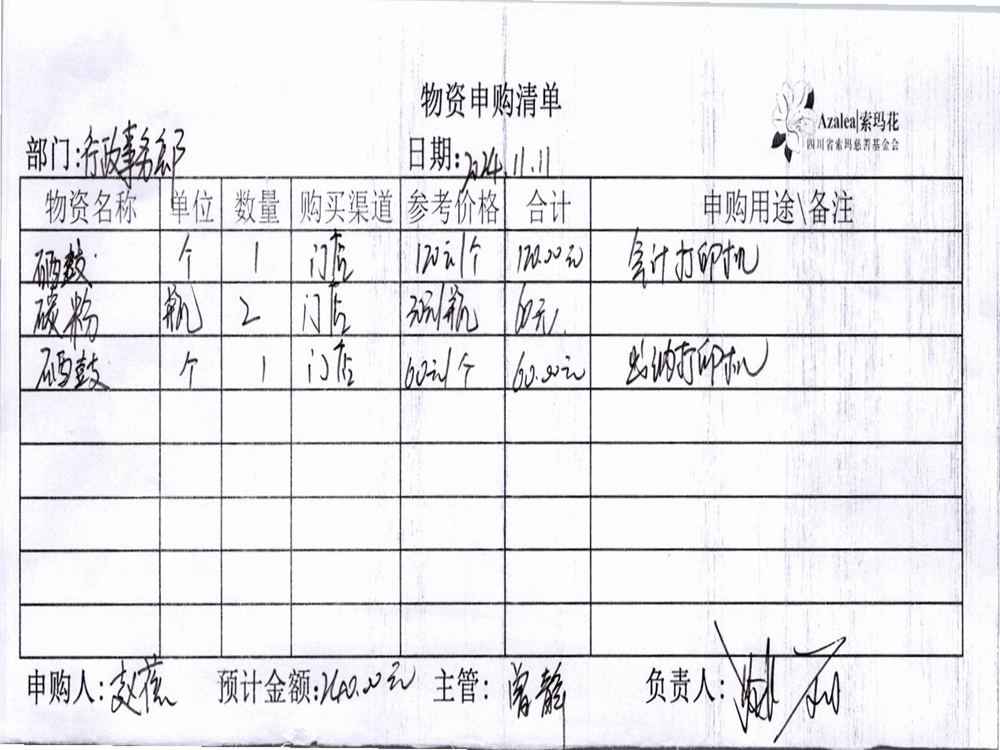 物资申购清单
Azalea|索玛花
四川省索玛慈善基金会
部门:行政事务部 日期:2024.11.11
物资名称 单位 数量 购买渠道 参考价格 合计 申购用途\备注
硒鼓 个 1 门店 120元/个 120.00元 会计打印机
碳粉 瓶 2 门店 30元/瓶 60元
硒鼓 个 1 门店 60元/个 60.00元 出纳打印机
申购人:赵蓓 预计金额:240.00元 主管:曾静 负责人: